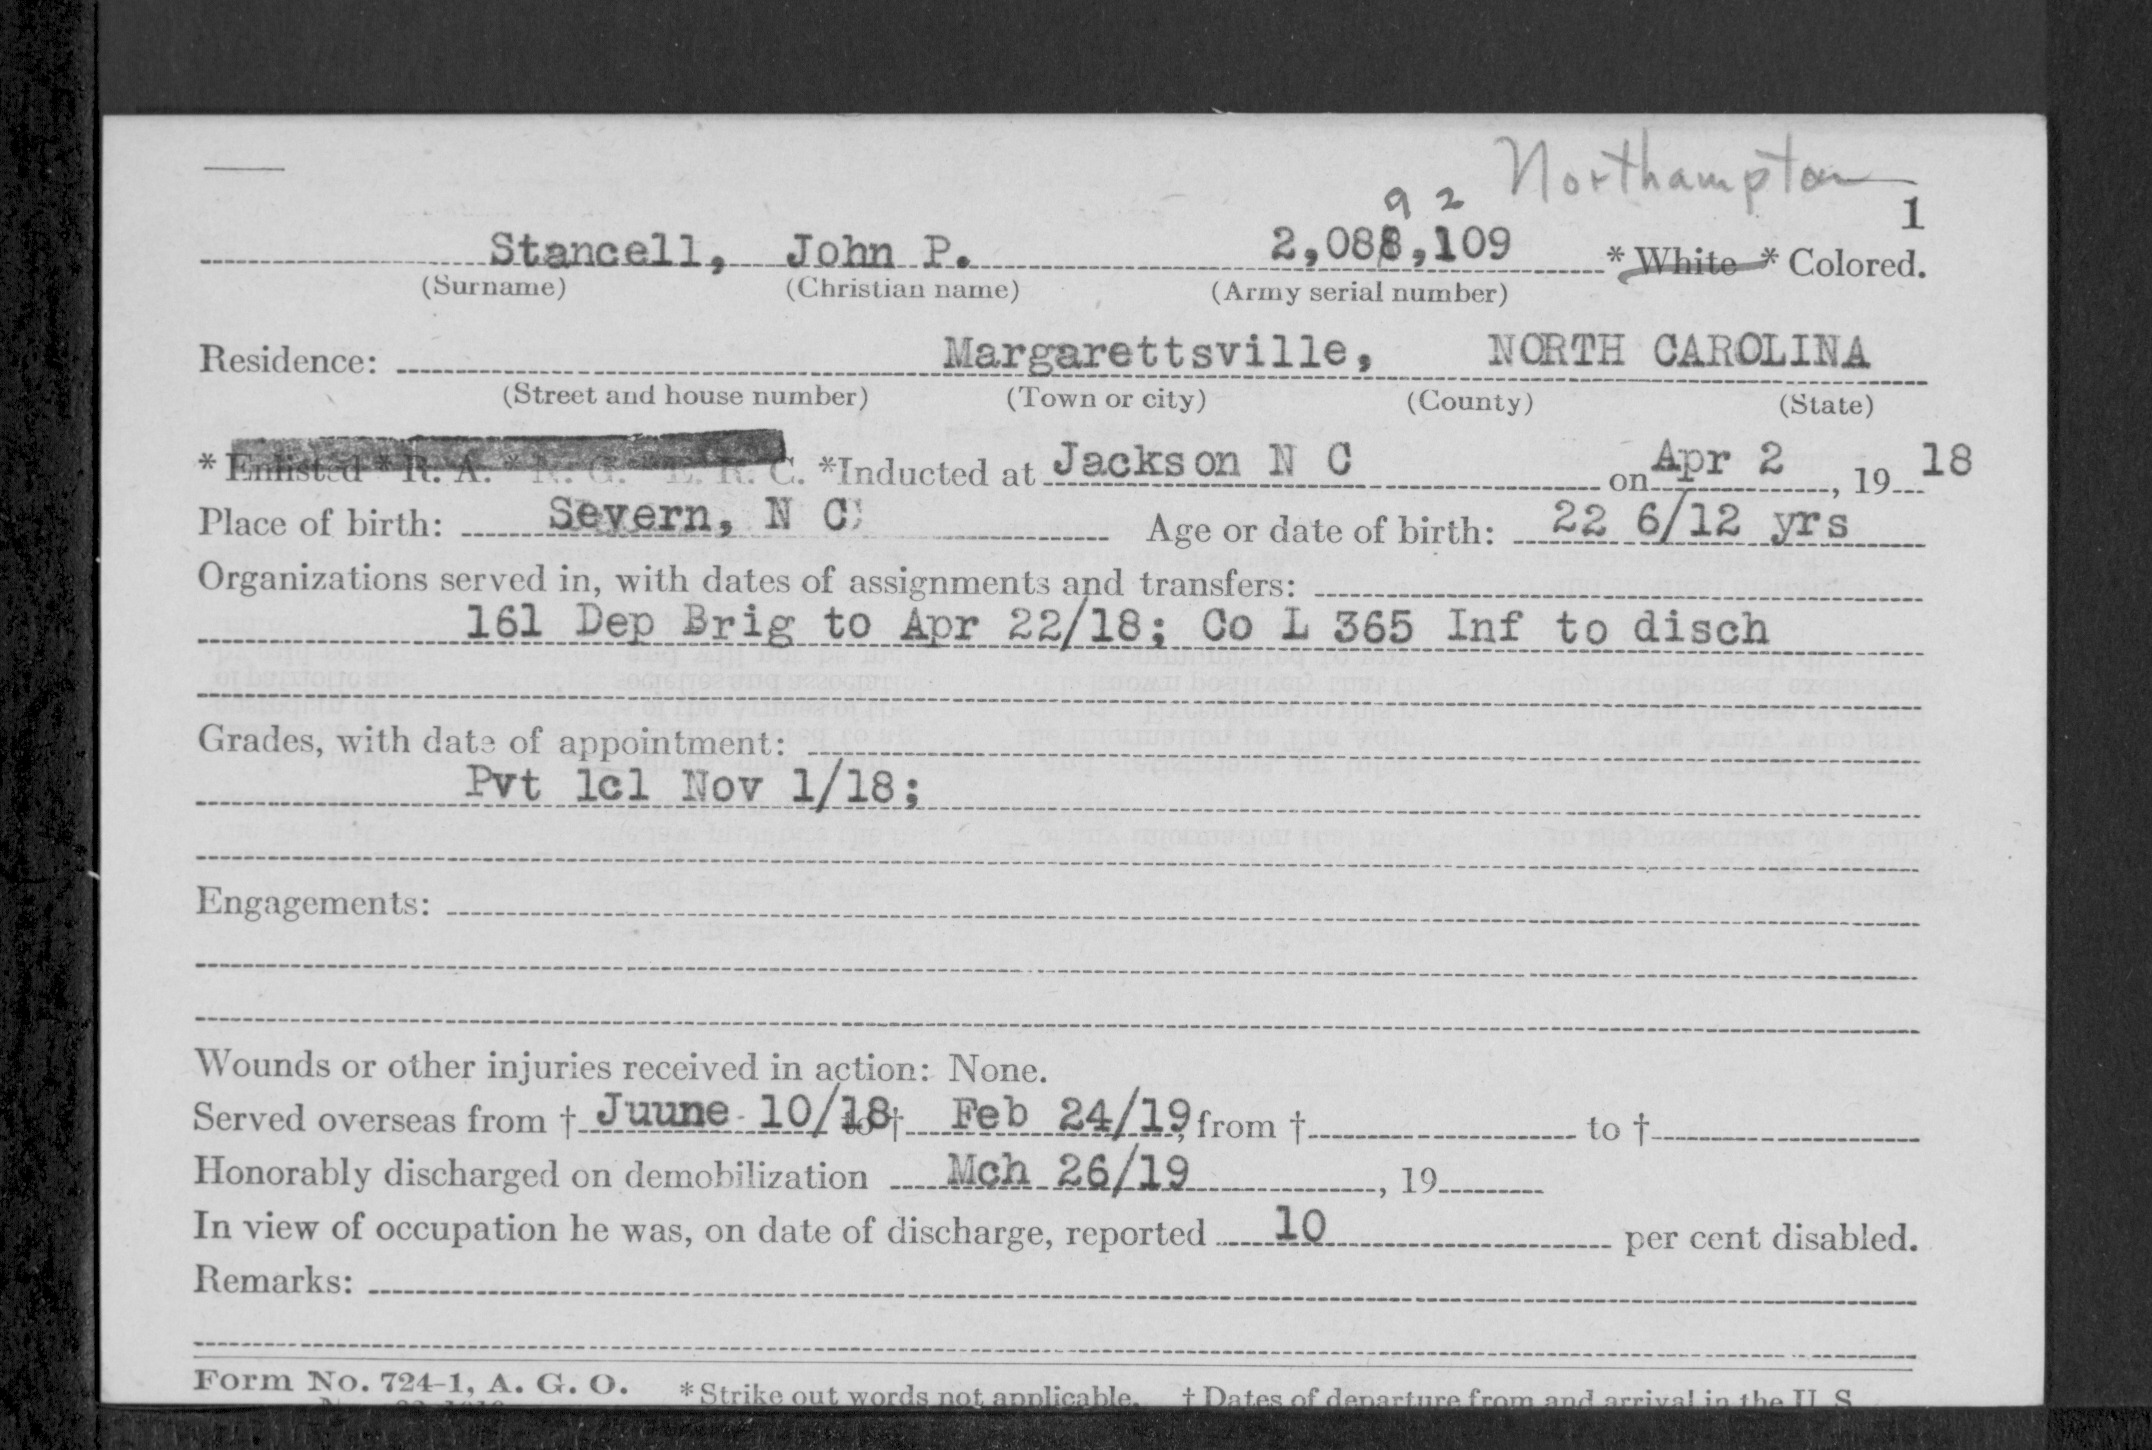 Northampton
9 2
1
Stancell, John P. 2,088,109 * White * Colored.
(Surname) (Christian name) (Army serial number)
Residence: Margarettsville, NORTH CAROLINA
(Street and house number) (Town or city) (County) (State)
* Enlisted * R. A. * N. G. * E. R. C. *Inducted at Jackson N C on Apr 2, 19 18
Place of birth: Severn, N C Age or date of birth: 22 6/12 yrs
Organizations served in, with dates of assignments and transfers:
161 Dep Brig to Apr 22/18; Co L 365 Inf to disch
Grades, with date of appointment:
Pvt 1cl Nov 1/18;
Engagements:
Wounds or other injuries received in action: None.
Served overseas from † Juune 10/18 to † Feb 24/19, from † to †
Honorably discharged on demobilization Mch 26/19, 19
In view of occupation he was, on date of discharge, reported 10 per cent disabled.
Remarks:
Form No. 724-1, A. G. O. * Strike out words not applicable. † Dates of departure from and arrival in the U. S.